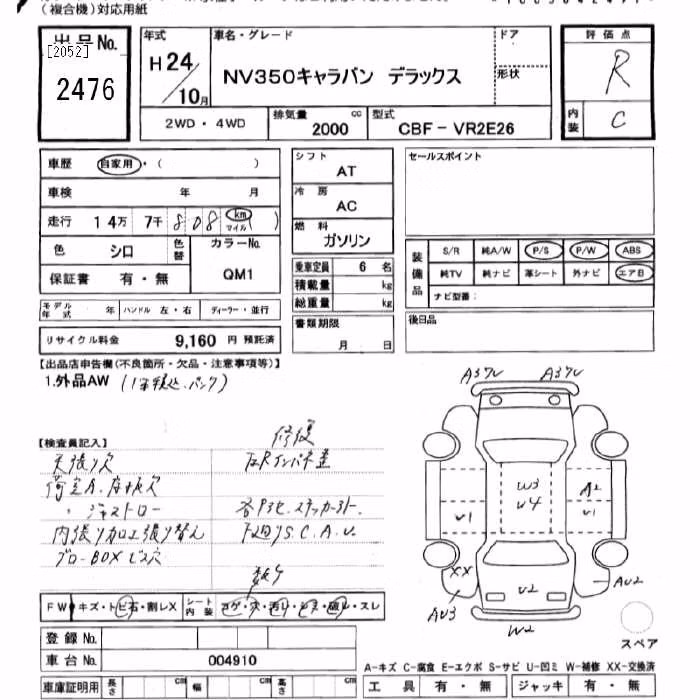 （複合機）対応用紙
出品No.
[2052]
2476
年式
H24/10月
車名・グレード
NV350キャラバン デラックス
ドア
形状
評価点
R
内装
C
2WD・4WD
排気量
2000 cc
型式
CBF－VR2E26
車歴 自家用・（ ）
車検 年 月
走行 14万 7千 808 （km マイル）
色 シロ
色替
カラーNo.
QM1
保証書 有・無
モデル年式 年
ハンドル 左・右
ディーラー・並行
リサイクル料金 9,160 円 預託済
シフト
AT
冷房
AC
燃料
ガソリン
乗車定員 6 名
積載量 kg
総重量 kg
書類期限
月 日
セールスポイント
装備品
S/R 純A/W P/S P/W ABS
純TV 純ナビ 革シート 外ナビ エアB
ナビ型番：
後日品
【出品店申告欄(不良箇所・欠品・注意事項等)】
1.外品AW
【検査員記入】
修復
天張り欠
ジャストロー
内張り加工張り替え
FW キズ・トビ石・割レX
シート内装 コゲ・穴・汚レ・シミ・破レ・スレ
登録No.
車台No. 004910
車庫証明用 長さ cm 幅 cm 高さ cm
A37V A37V
W3
U4
U1
A2
U1
XX
AU3
U2
AU2
W2
スペア
A-キズ C-腐食 E-エクボ S-サビ U-凹ミ W-補修 XX-交換済
工具 有・無 ジャッキ 有・無